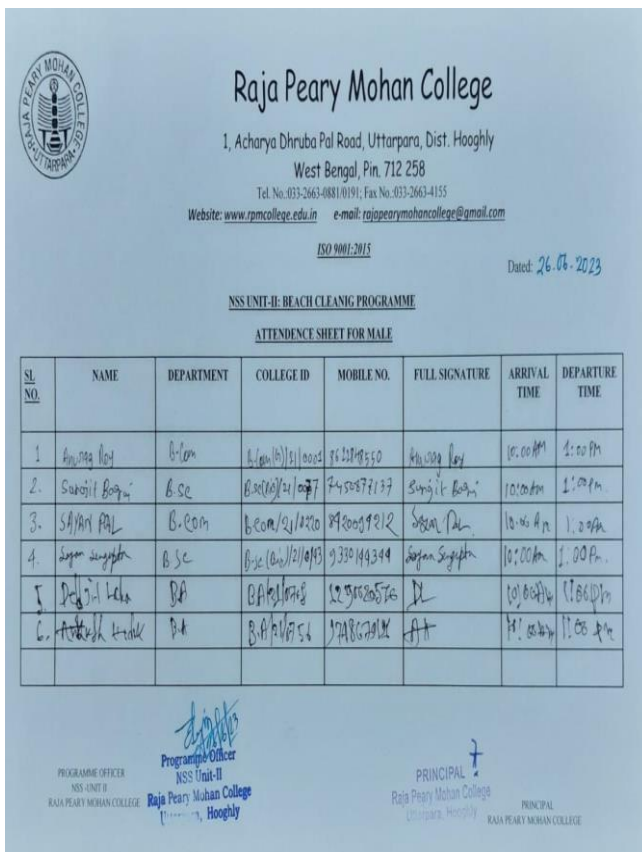 RAJA PEARY MOHAN COLLEGE
UTTARPARA
Raja Peary Mohan College
1, Acharya Dhruba Pal Road, Uttarpara, Dist. Hooghly
West Bengal, Pin. 712 258
Tel. No.:033-2663-0881/0191; Fax No.:033-2663-4155
Website: www.rpmcollege.edu.in e-mail: rajapearymohancollege@gmail.com
ISO 9001:2015
Dated: 26.06.2023
NSS UNIT-II: BEACH CLEANIG PROGRAMME
ATTENDENCE SHEET FOR MALE
SL NO. NAME DEPARTMENT COLLEGE ID MOBILE NO. FULL SIGNATURE ARRIVAL TIME DEPARTURE TIME
1 Anurag Roy B-Com Anurag Roy 10:00AM 1:00 PM
2. B.SC 7450877137 10:00Am 1:00pm
3. SAYAN PAL B.Com BCom/21/0220 8920099212 1:00Pm
4. Sayan Sengupta B SC 9330144344 Sayan Sengupta 10:00Am 1:00 Pm.
5. BA DL
6. B.A
Programme Officer
NSS Unit-II
Raja Peary Mohan College
Hooghly
PROGRAMME OFFICER
NSS -UNIT II
RAJA PEARY MOHAN COLLEGE
PRINCIPAL
Raja Peary Mohan College
Uttarpara, Hooghly
PRINCIPAL
RAJA PEARY MOHAN COLLEGE